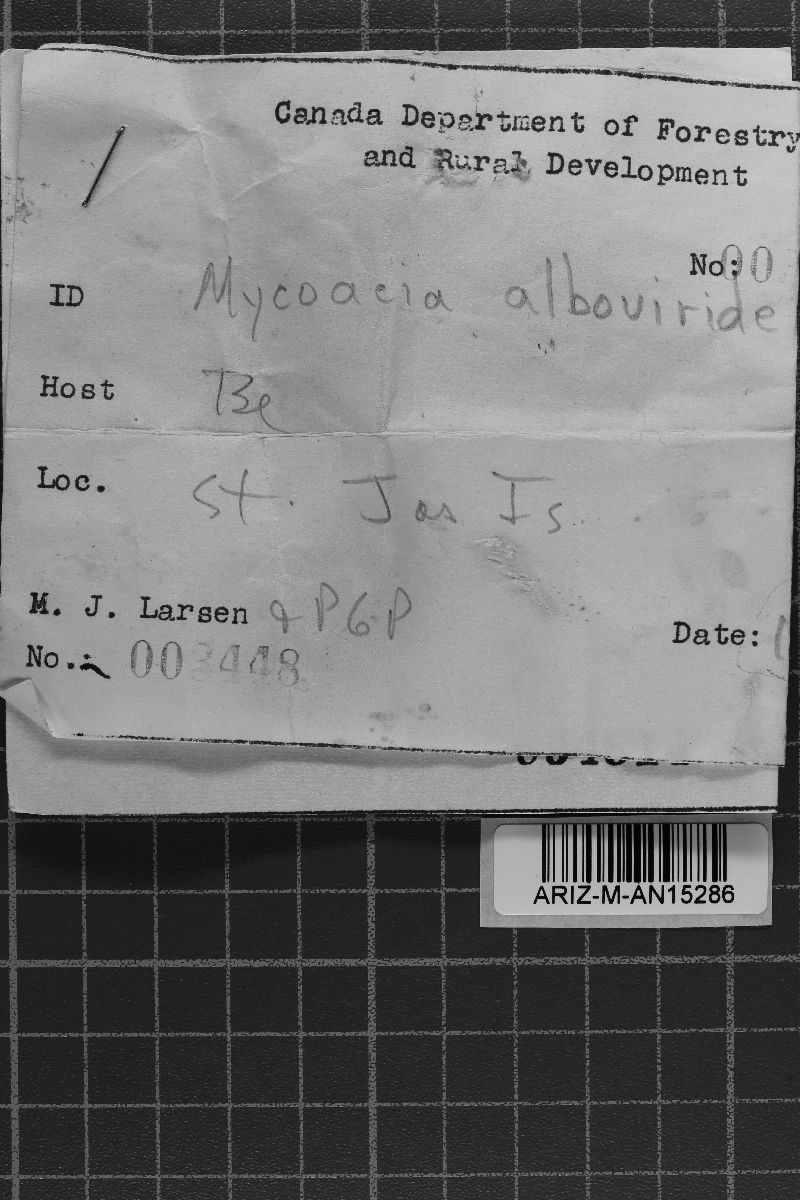 Canada Department of Forestry
and Rural Development
No: 00
ID Mycoacia alboviride
Host Be
Loc. St. Jos Is
M. J. Larsen & PGP
Date:
No. 003448
ARIZ-M-AN15286